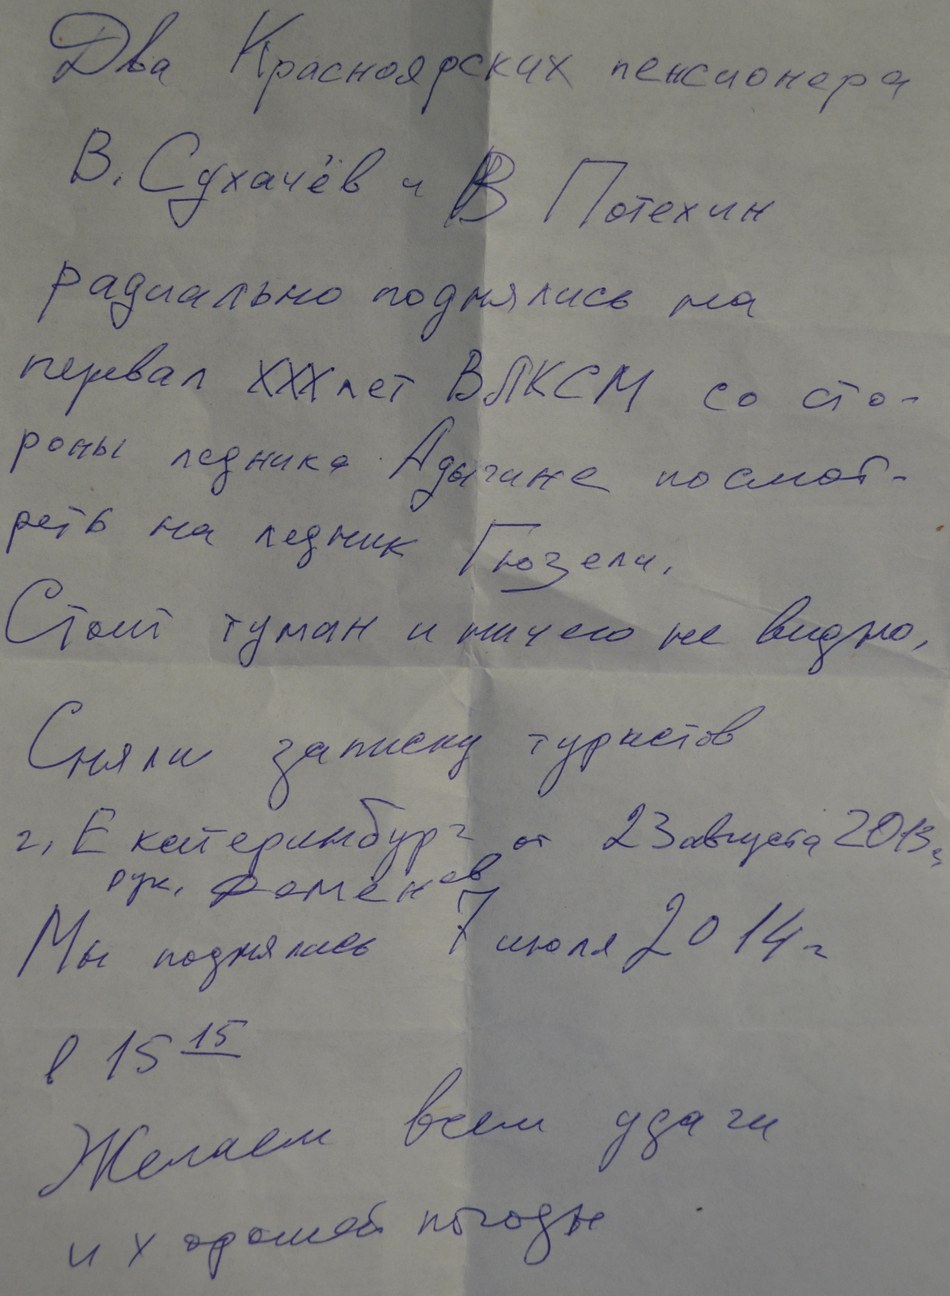 Два Красноярских пенсионера
В. Сухачёв и В Потехин
радиально поднялись на
перевал XXX лет ВЛКСМ со сто-
роны ледника Адыгине посмот-
реть на ледник Гюзели.
Стоит туман и ничего не видно,
Сняли записку туристов
г. Екатеринбург от 23 августа 2013г.
рук.
Мы поднялись 7 июля 2014г
в 15 15
Желаем всем удачи
и хорошей погоды